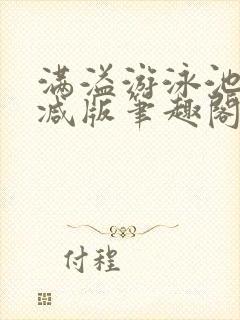 满溢游泳池
减版笔趣阁
付程